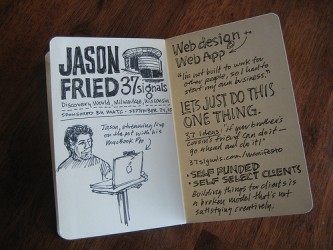 JASON
FRIED 37signals
Discovery World, Milwaukee, Wisconsin
SPONSORED BIG WANTZ - SEPTEMBER
Jason, streaming live
on the net with his
MacBook Pro
Web design
Web App
"I'm not built to work for
other people, so I had to
start my own business."
LETS JUST DO THIS
ONE THING.
37 ideas: if your brother's
cousin's friend can do it—
go ahead and do it!"
37signals.com/manifesto
• SELF FUNDED
• SELF SELECT CLIENTS
Building things for clients is
a broken model that's not
satisfying creatively.